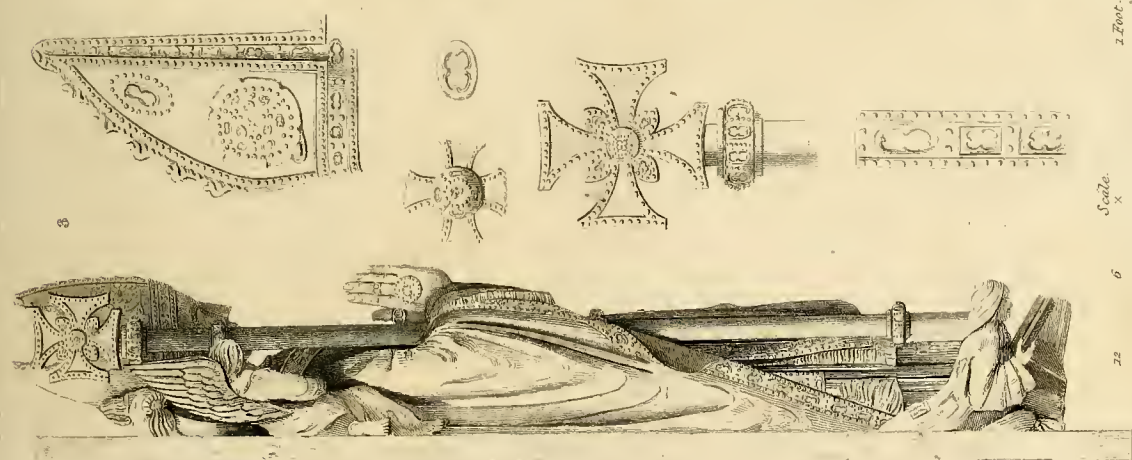 3
12 6 Scale. × 1 Foot.